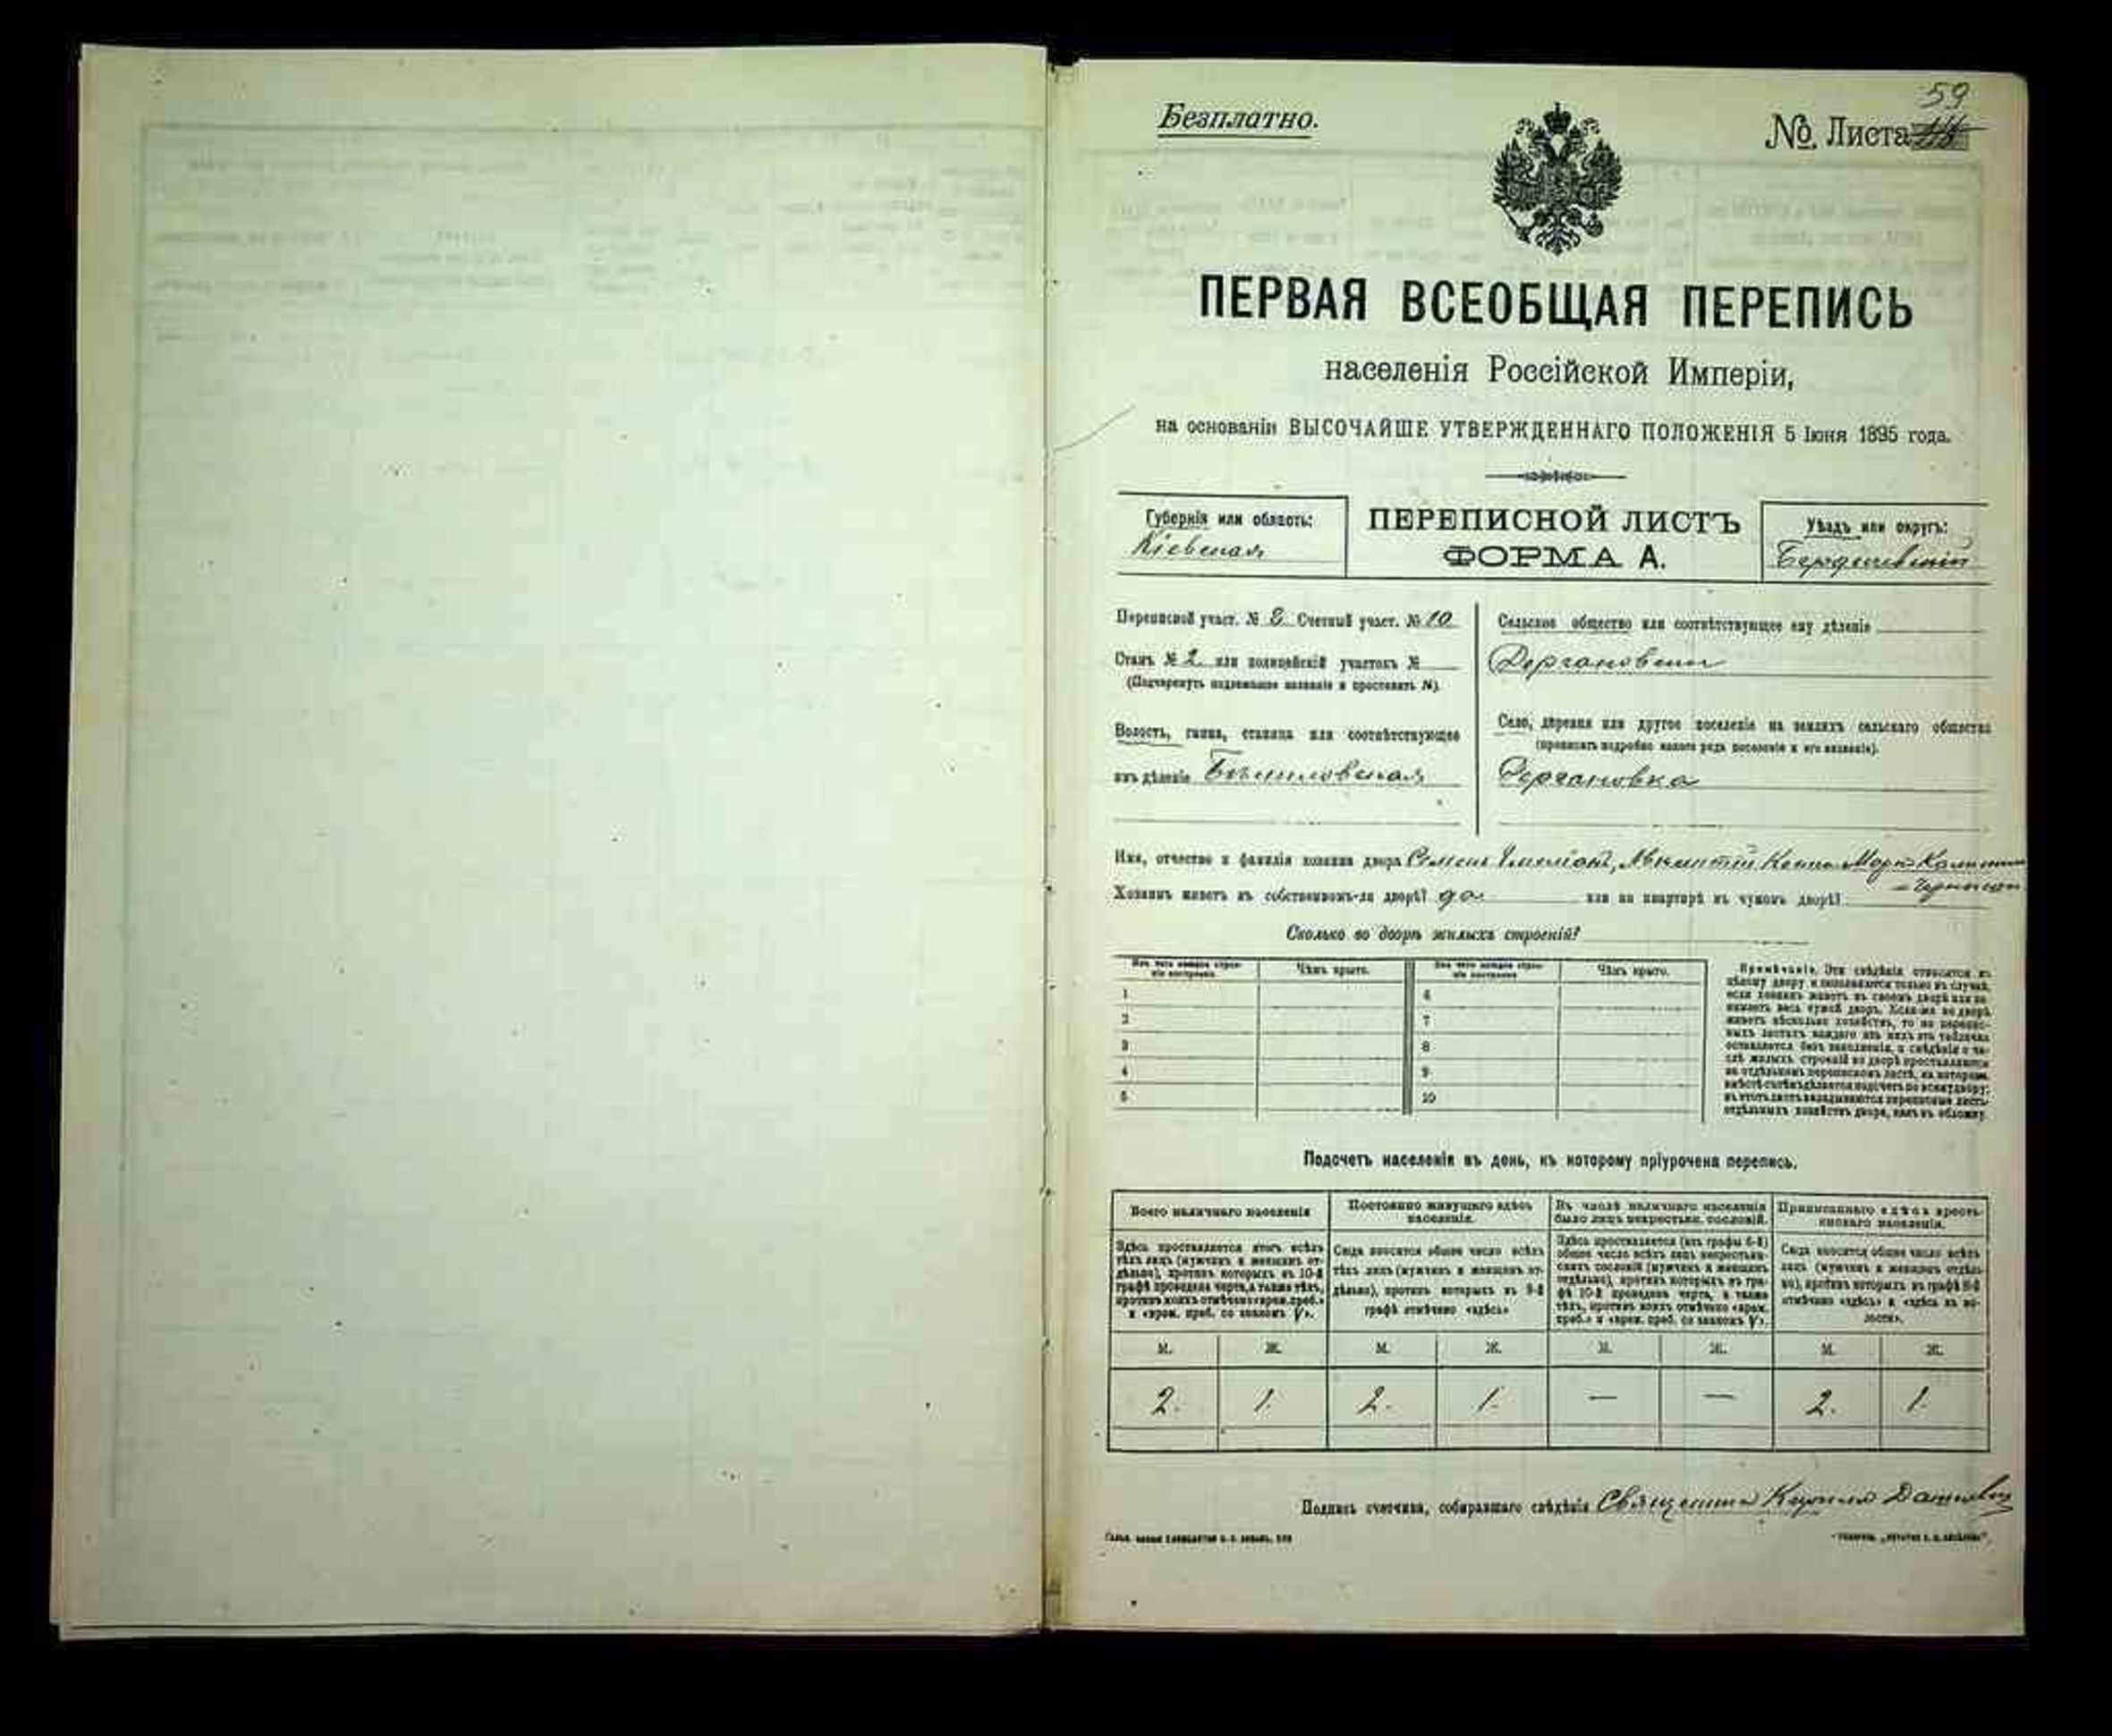 59
Безплатно.
№ Листа
ПЕРВАЯ ВСЕОБЩАЯ ПЕРЕПИСЬ
населенія Россійской Имперіи,
на основаніи ВЫСОЧАЙШЕ УТВЕРЖДЕННАГО ПОЛОЖЕНІЯ 5 Іюня 1895 года.
Губернія или область:
Кіевская
ПЕРЕПИСНОЙ ЛИСТЪ
ФОРМА А.
Уѣздъ или округъ:
Бердичевскій
Переписной участ. № 2 Счетный участ. № 10
Станъ № 2 или полицейскій участокъ №
(Подчеркнуть надлежащее названіе и проставить №).
Волость, гмина, станица или соотвѣтствующее
имъ дѣленіе
Сельское общество или соотвѣтствующее ему дѣленіе
Село, деревня или другое поселеніе на земляхъ сельскаго общества
(прописать подробно какого рода поселеніе и его названіе).
Дергановка
Имя, отчество и фамилія хозяина двора
Хозяинъ живетъ въ собственномъ-ли дворѣ? да или на квартирѣ въ чужомъ дворѣ?
Сколько во дворѣ жилыхъ строеній?
Изъ чего каждое строеніе построено. Чѣмъ крыто. Изъ чего каждое строеніе построено Чѣмъ крыто.
1 6
2 7
3 8
4 9
5 10
Примѣчаніе. Эти свѣдѣнія относятся къ
цѣлому двору и пополняются только въ случаѣ,
если хозяинъ живетъ въ своемъ дворѣ или за-
нимаетъ весь чужой дворъ. Если-же во дворѣ
живетъ нѣсколько хозяйствъ, то на перепис-
ныхъ листахъ каждаго изъ нихъ эта табличка
оставляется безъ заполненія, а свѣдѣнія о чи-
слѣ жилыхъ строеній во дворѣ проставляются
на отдѣльномъ переписномъ листѣ, на которомъ
вмѣстѣ съ тѣмъ дѣлается подсчетъ по всему двору;
въ этотъ листъ вкладываются переписные листы
отдѣльныхъ хозяйствъ двора, какъ въ обложку.
Подсчетъ населенія въ день, къ которому пріурочена перепись.
Всего наличнаго населенія
Здѣсь проставляется итогъ всѣхъ
тѣхъ лицъ (мужчинъ и женщинъ от-
дѣльно), противъ которыхъ въ 10-й
графѣ проведена черта, а также тѣхъ,
противъ коихъ отмѣчено «врем. преб.»
и «врем. преб. со знакомъ V».
Постоянно живущаго здѣсь
населенія.
Сюда вносится общее число всѣхъ
тѣхъ лицъ (мужчинъ и женщинъ от-
дѣльно), противъ которыхъ въ 9-й
графѣ отмѣчено «здѣсь»
Въ числѣ наличнаго населенія
было лицъ некрестьян. сословій.
Здѣсь проставляется (изъ графы 6-й)
общее число всѣхъ лицъ некрестьян-
скихъ сословій (мужчинъ и женщинъ
отдѣльно), противъ которыхъ въ гра-
фѣ 10-й проведена черта, а также
тѣхъ, противъ коихъ отмѣчено «врем.
преб.» и «врем. преб. со знакомъ V».
Приписаннаго здѣсь кресть-
янскаго населенія.
Сюда вносится общее число всѣхъ
лицъ (мужчинъ и женщинъ отдѣль-
но), противъ которыхъ въ графѣ 8-й
отмѣчено «здѣсь» и «здѣсь въ во-
лости».
М. Ж. М. Ж. М. Ж. М. Ж.
2. 1. 2. 1. — — 2. 1.
Подпись счетчика, собиравшаго свѣдѣнія Священникъ Кириллъ